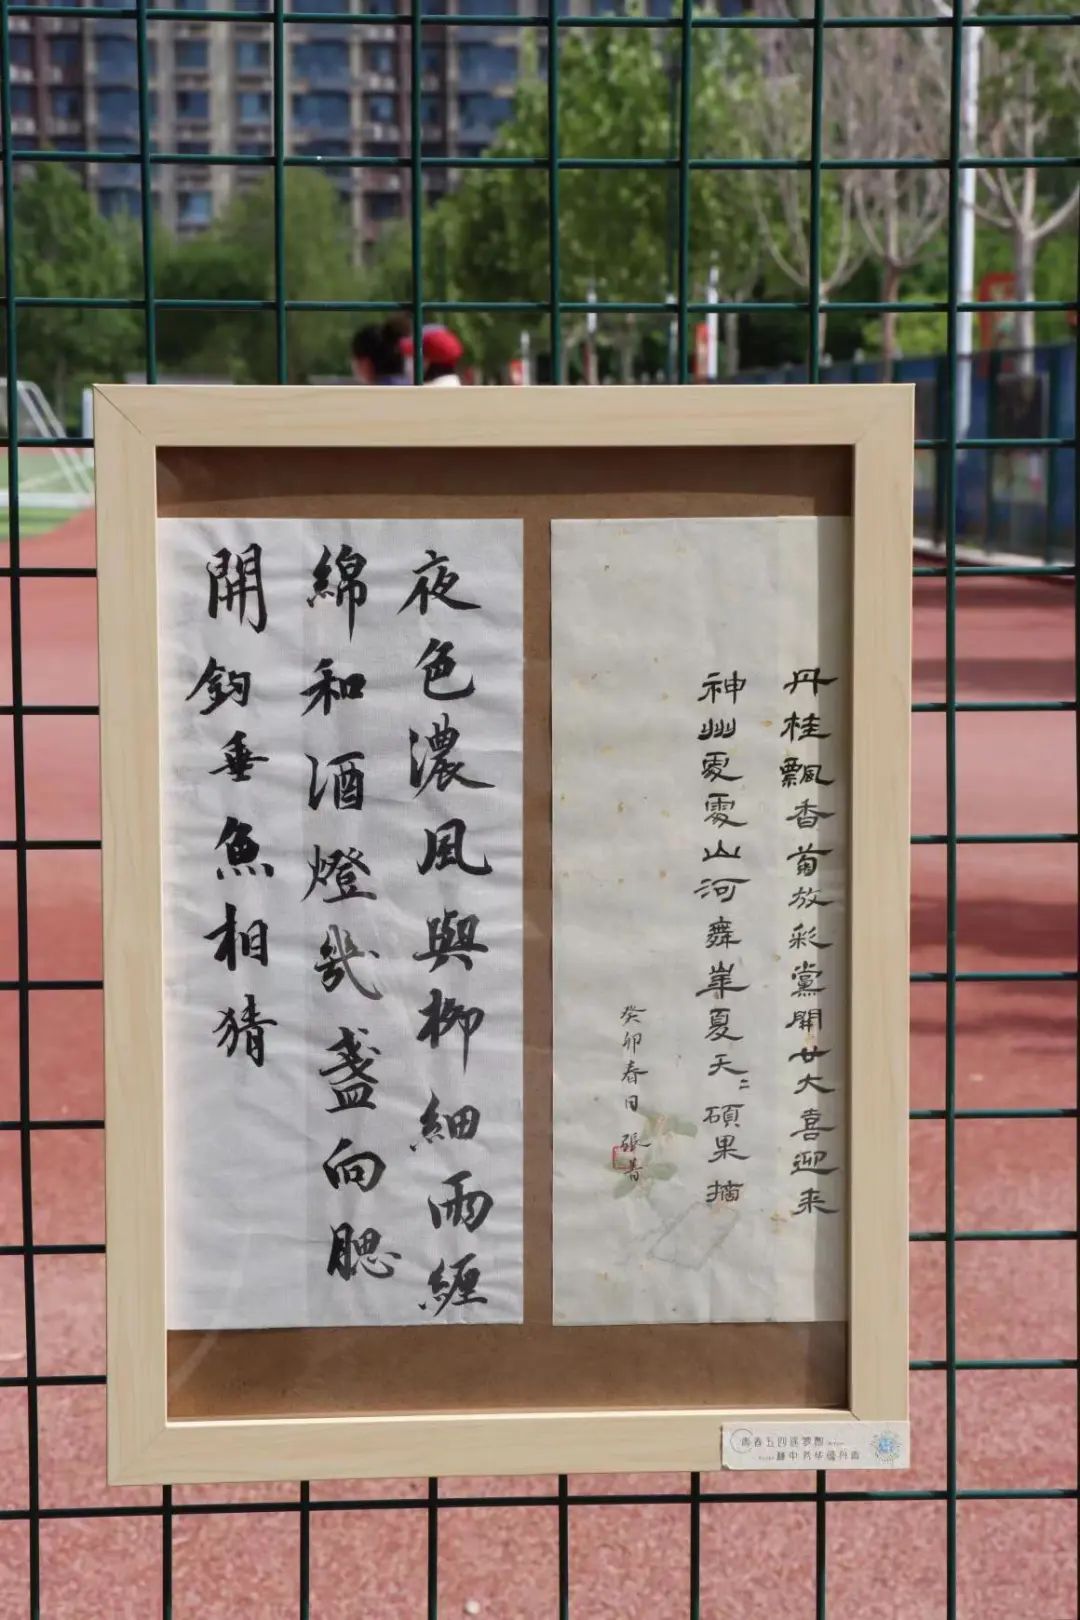 丹桂飄香菊放彩黨開廿大喜迎来
神州處處山河舞華夏天〻碩果摘
癸卯春日 張
夜色濃風與柳細雨纏
綿和酒燈幾盞向腮
開鈞垂魚相猜
青春五四逐梦
中芳华